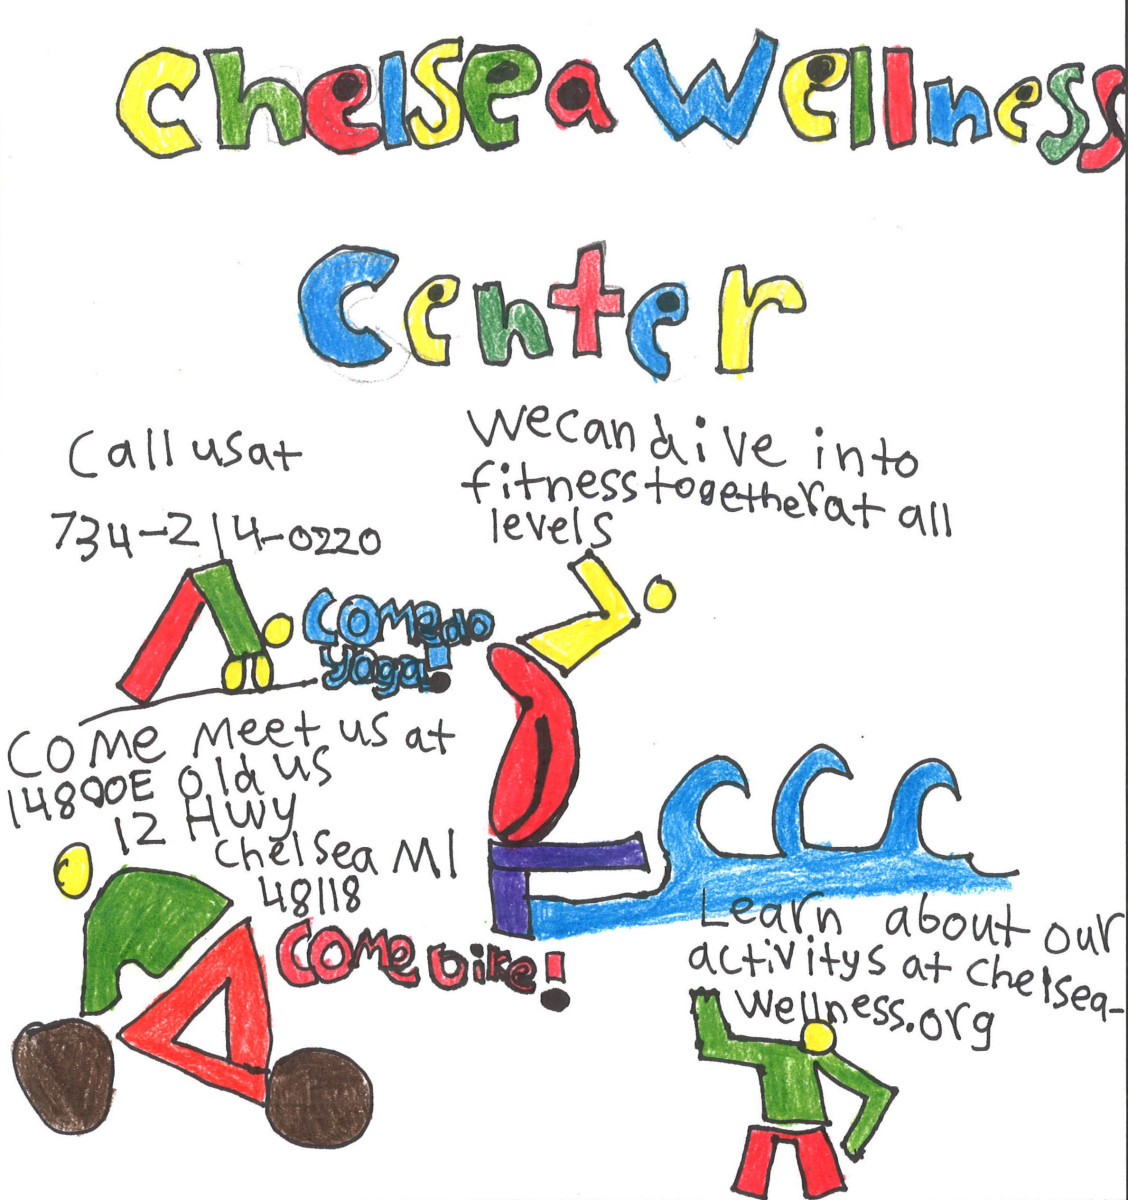 Chelsea Wellness
Center
Call us at
734-214-0220
We can dive into
fitness together at all
levels
Come do
yoga!
Come Meet us at
14800E old us
12 Hwy
Chelsea MI
48118
Come bike!
Learn about our
activitys at chelsea-
wellness.org